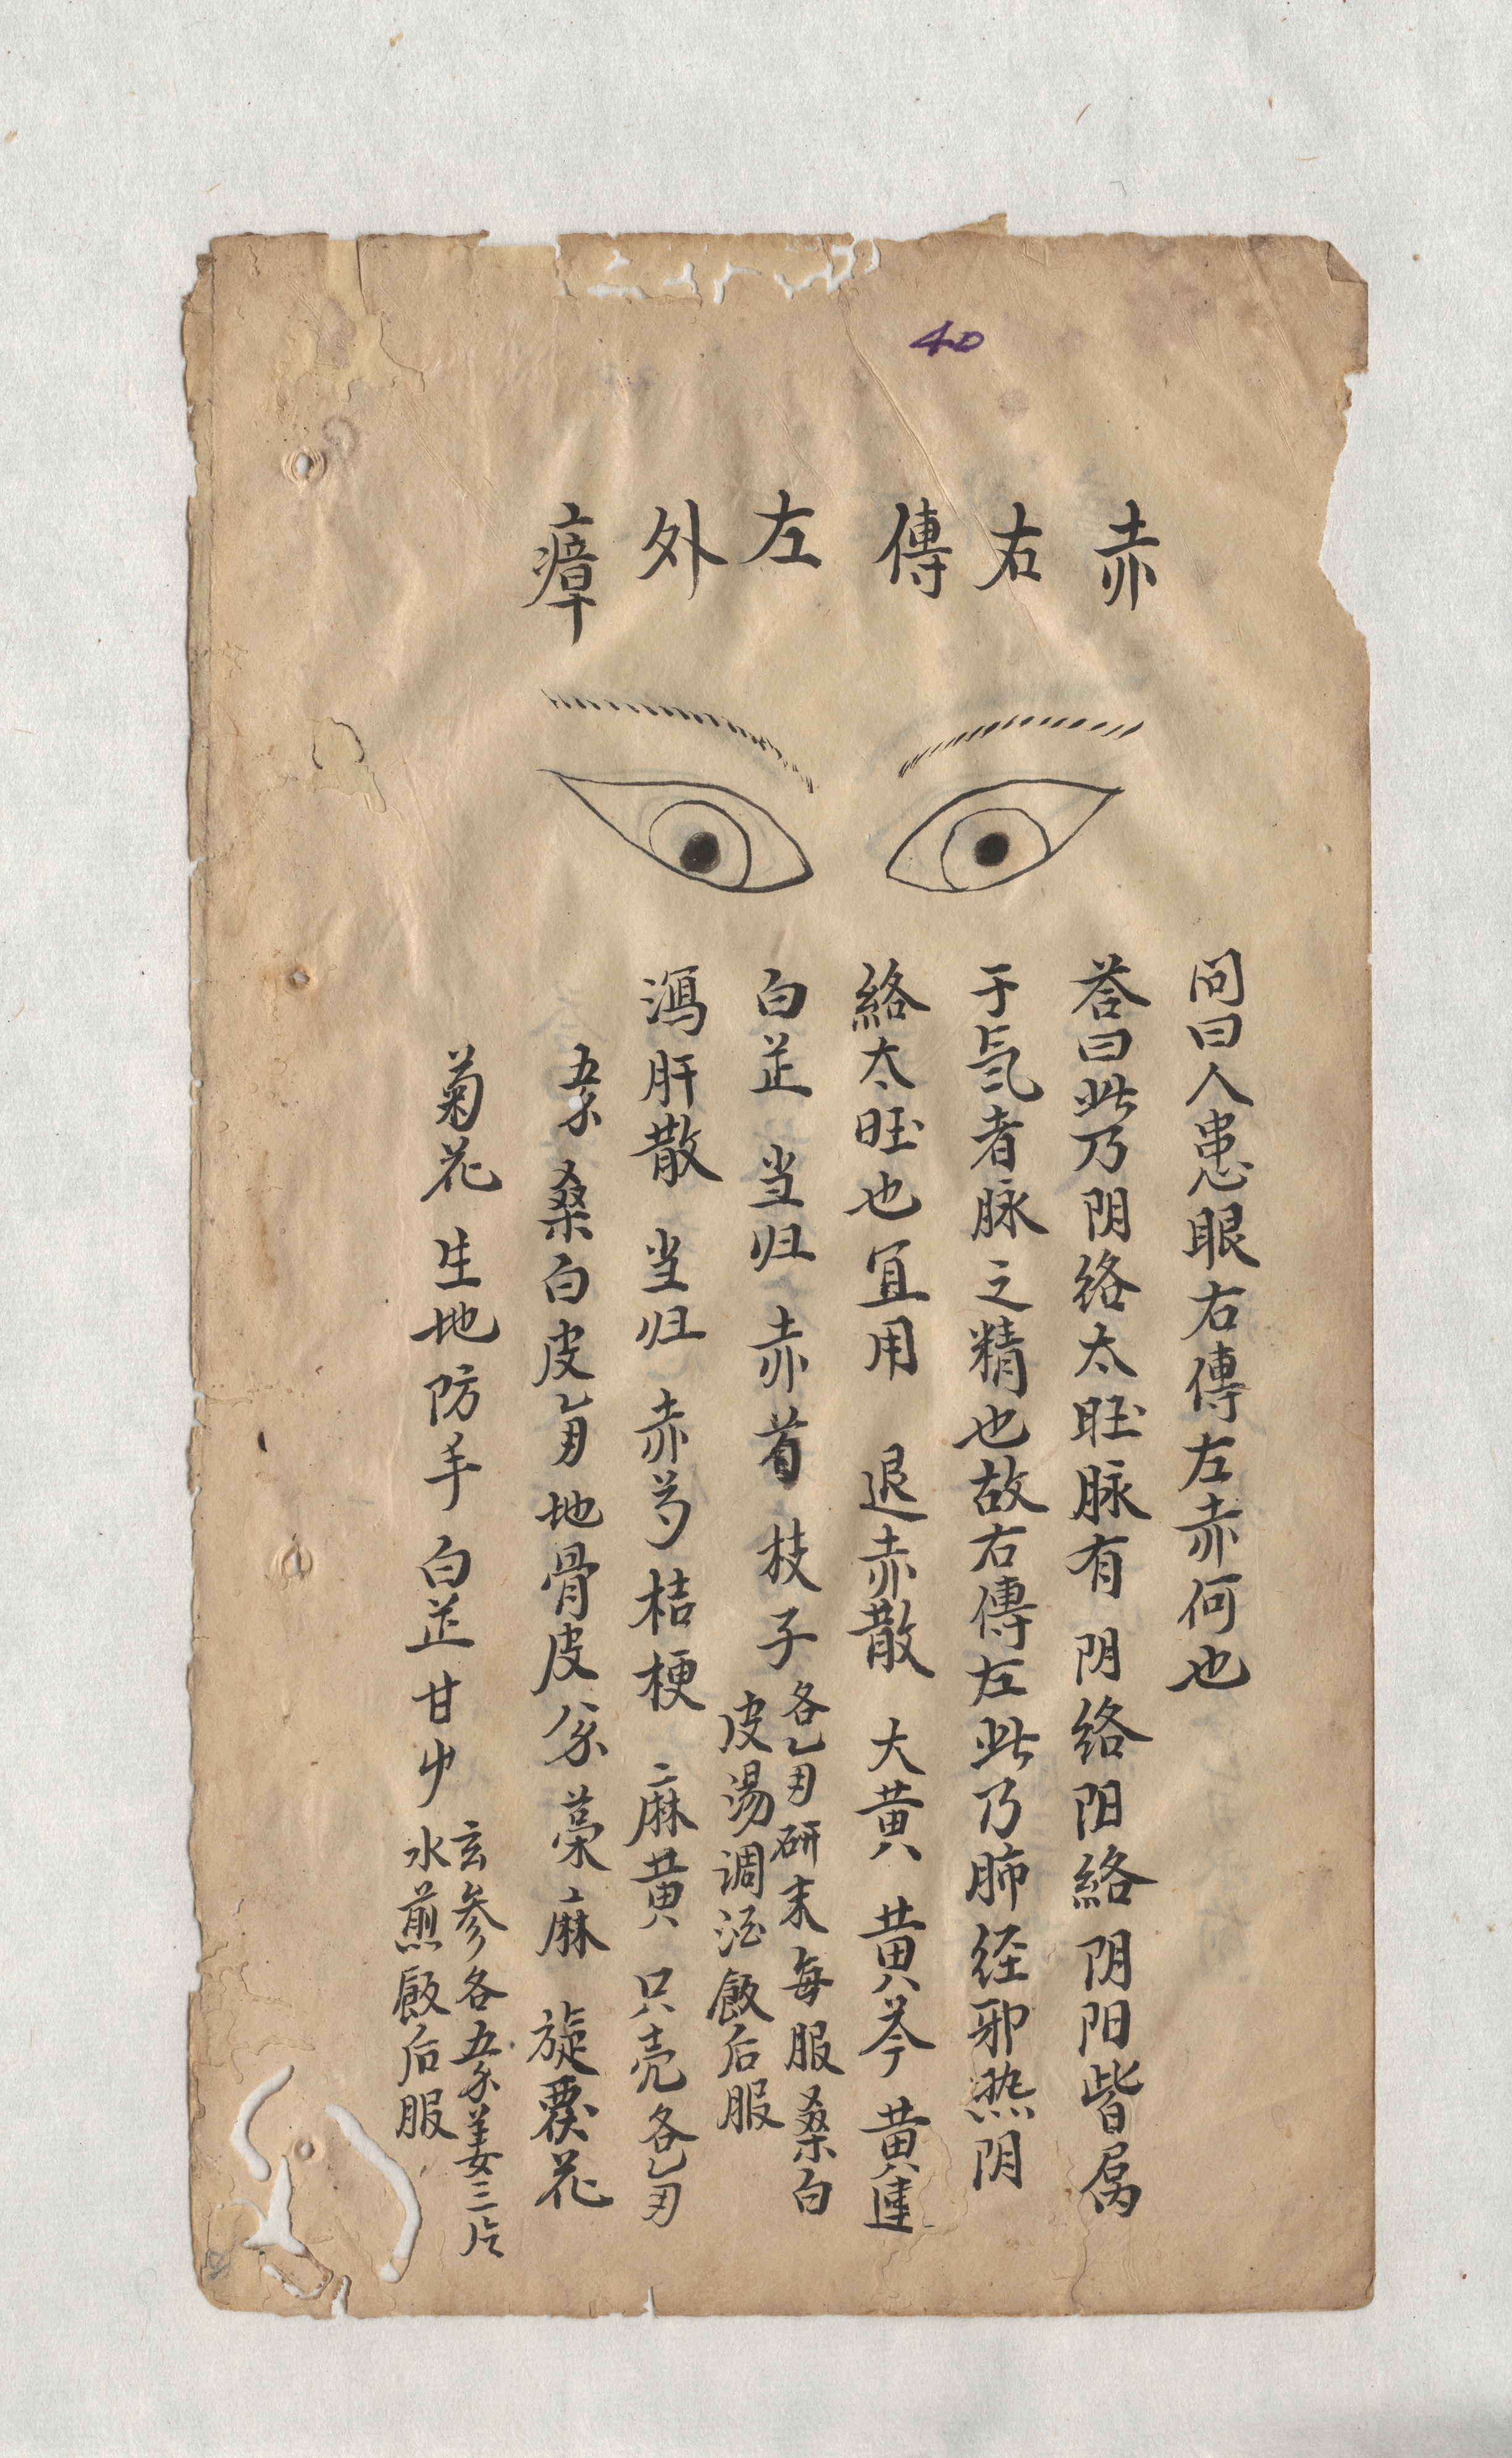 40
赤右傳左外瘴
問曰人患眼右傳左赤何也
荅曰此乃阴络太旺脉有阴络阳絡阴阳皆属
于氣者脉之精也故右傳左此乃肺经邪热阴
絡太旺也宜用 退赤散 大黄 黄芩 黄連
白芷 当归 赤芍 枝子 各乙刄研末每服桑白
皮湯调酒飯后服
瀉肝散 当归 赤芍 桔梗 麻黄 只壳各乙刄
五分 桑白皮乙刄地骨皮分藁麻 旋覆花
菊花 生地 防手 白芷 甘屮 玄参各五分姜三片
水煎飯后服